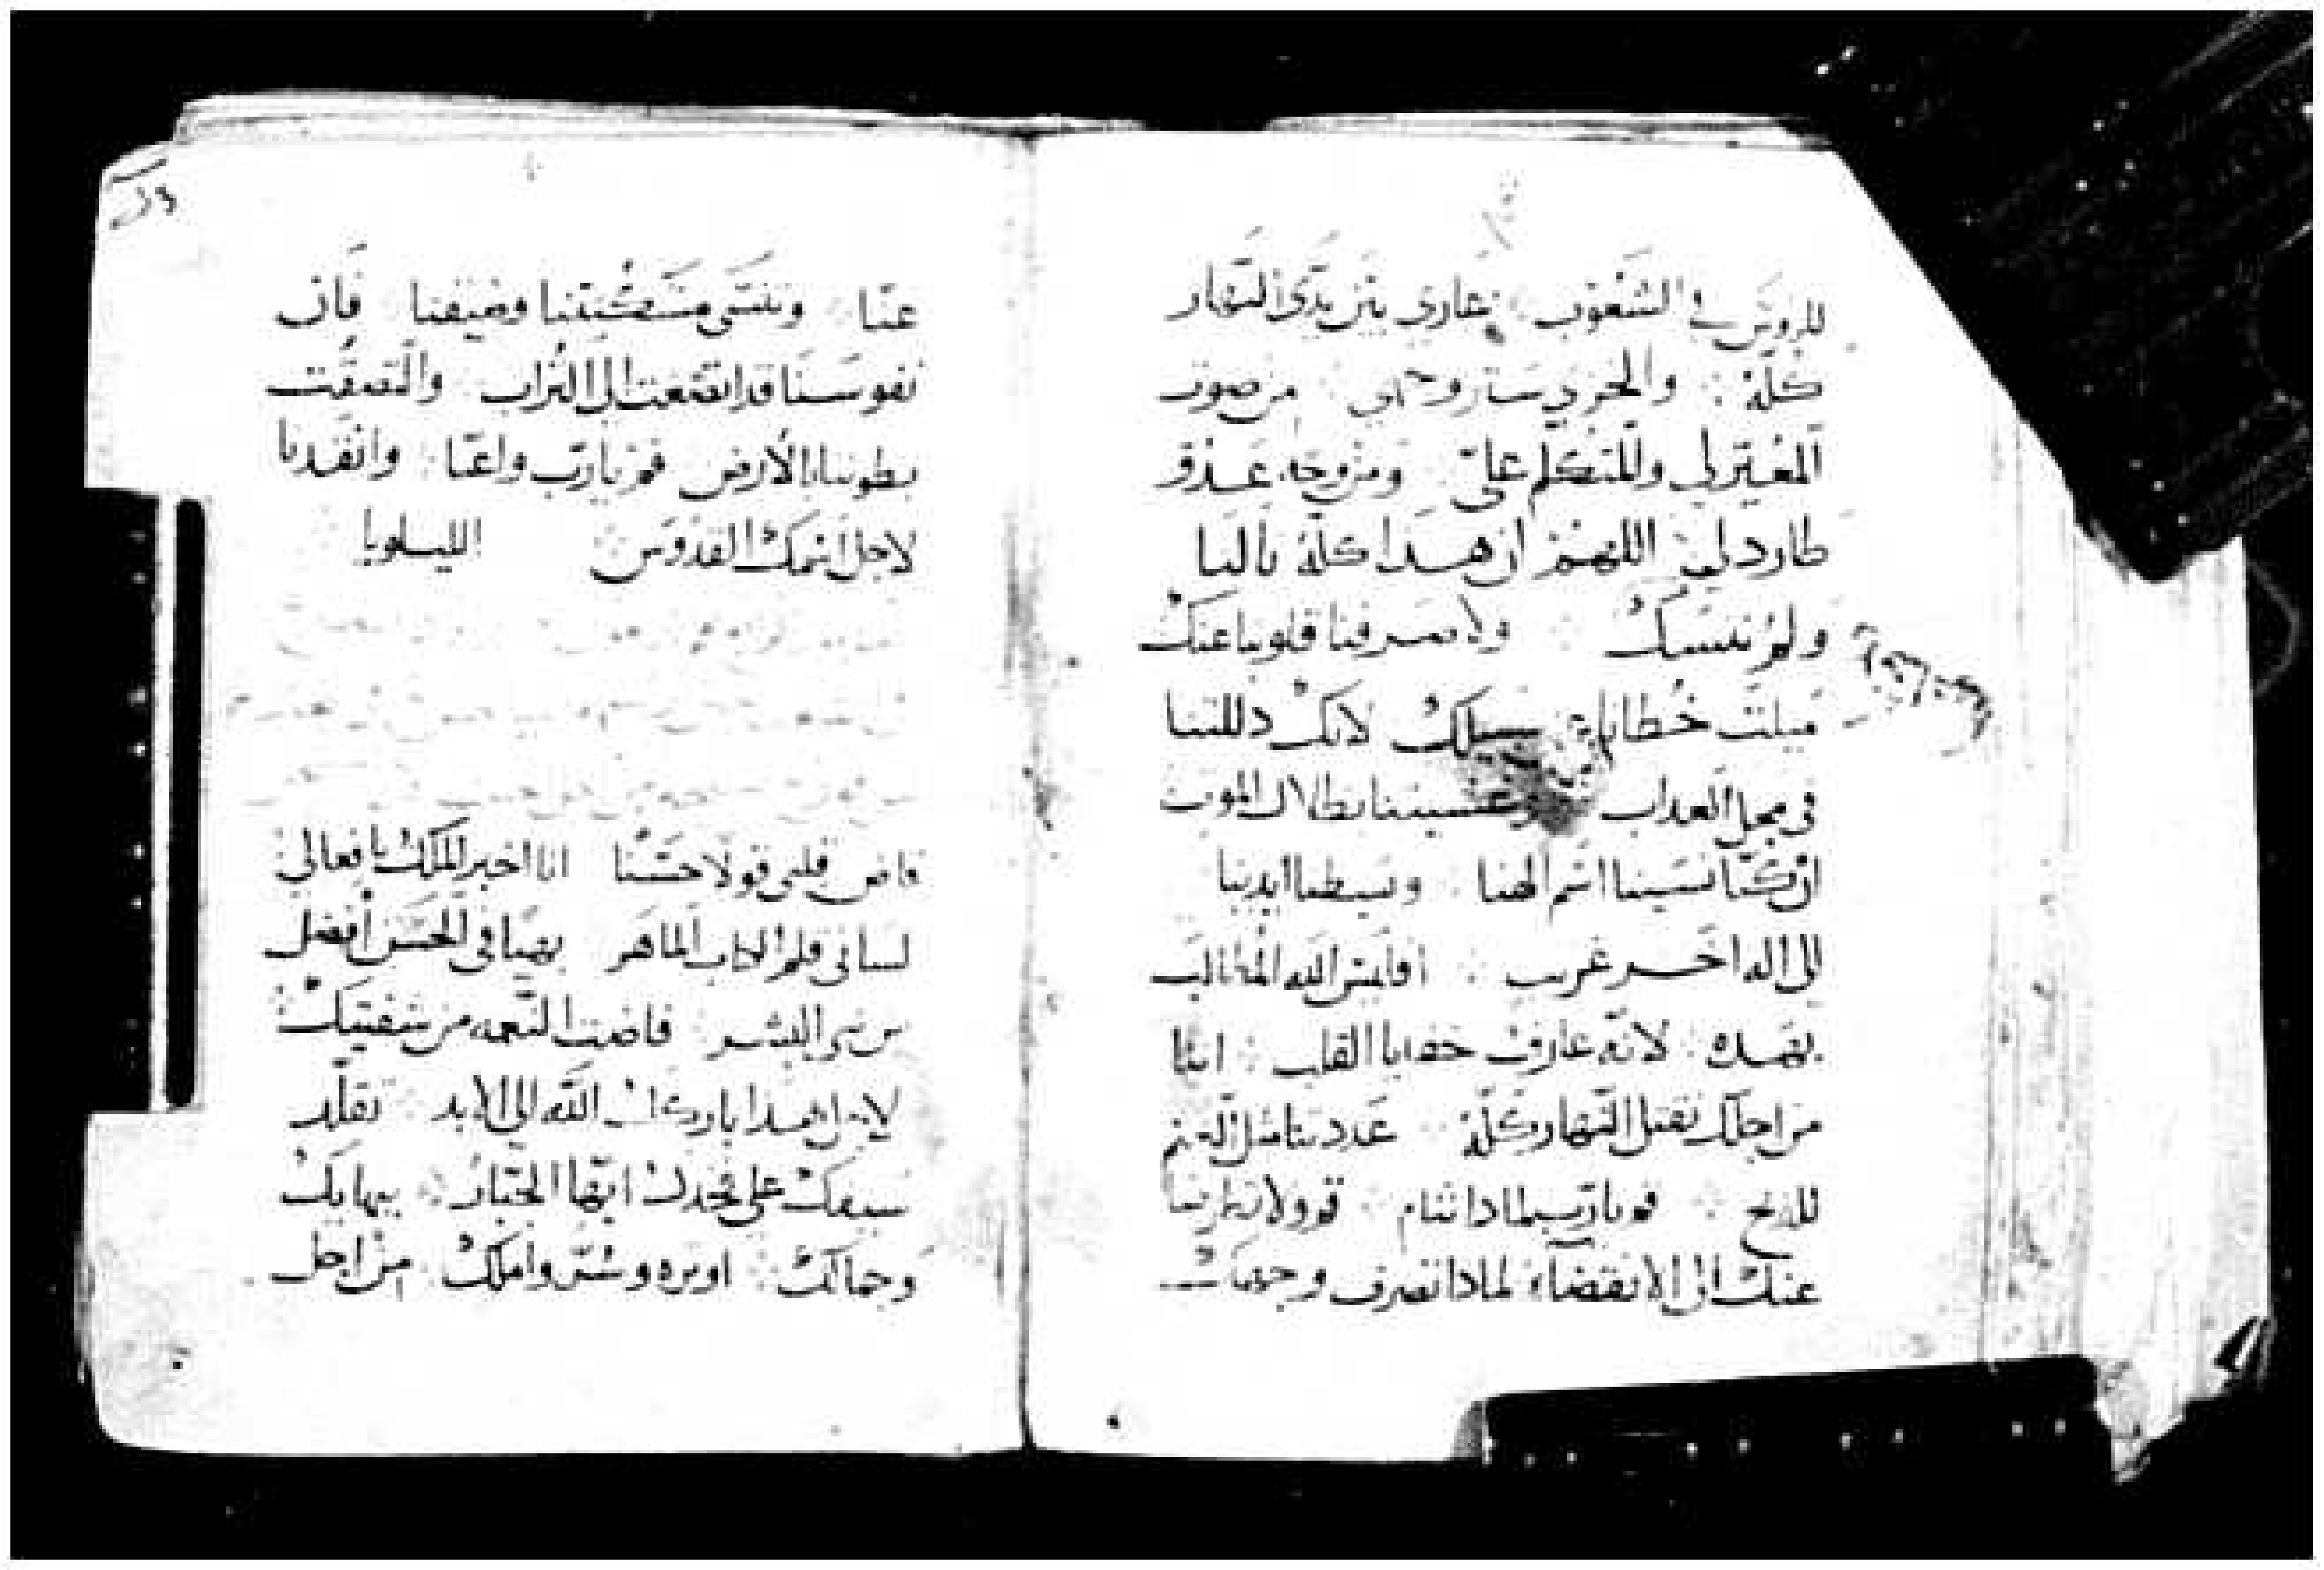 للرؤس في الشعوب عاري بين يدي النهار
كله والخزي ستر وجهي من صوت
المعير لي والمتكلم علي ومن وجه عدو
طارد لي اللهم ان هدا كله نالنا
ولم ننسك ولا صرفنا قلوبنا عنك
ميلت خطانا سبيلك لانك دللتنا
في محل العداب وغشيتنا بظلال الموت
ان كنا نسينا اسم الهنا وبسطنا ايدينا
الى اله اخر غريب افليس الله المطالب
بهده لانه عارف خفايا القلب اننا
من اجلك نقتل النهار كله عددنا مثل الغنم
للدبح قم يا رب لمادا تنام قم ولا
عنك الى الانقضاء لمادا تصرف وجهك
عنا وتنسى مسكنتنا وضيقنا فان
نفوسنا قد اتضعت الى التراب والتصقت
بطوننا بالارض قم يا رب واعنا وانقدنا
لاجل اسمك القدوس الليلويا
فاض قلبي قولا حسنا انا اخبر الملك بافعالي
لساني قلم الكاتب الماهر بهيا في الحسن افضل
من بني البشر فاضت النعمه من شفتيك
لاجل هدا باركك الله الى الابد تقلد
سيفك على فخدك ايها الجبار ببهايك
وجمالك اوتره وسر واملك من اجل